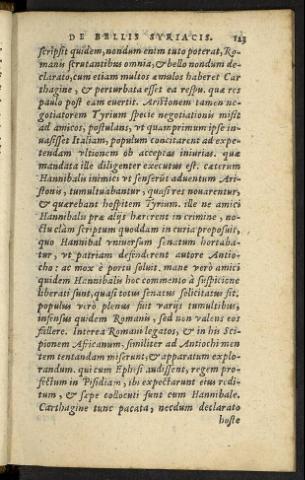 DE BELLIS SYRIACIS. 123
scripsit quidem, nondum enim tuto poterat, Ro-
manis scrutantibus omnia, & bello nondum de-
clarato, cum etiam multos æmulos haberet Car
thagine, & perturbata esset ea respu. quæ res
paulo post eam euertit. Aristonem tamen ne-
gotiatorem Tyrium specie negotiationis misit
ad amicos, postulans, vt quamprimum ipse in-
uasisset Italiam, populum concitarent ad expe-
tendam vltionem ob acceptas iniurias. quæ
mandata ille diligenter executus est. cæterum
Hannibalis inimici vt senserũt aduentum Ari-
stonis, tumultuabantur, quasi res nouarentur,
& quærebant hospitem Tyrium. ille ne amici
Hannibalis præ alijs hærerent in crimine, no-
ctu clàm scriptum quoddam in curia proposuit,
quo Hannibal vniuersum senatum hortaba-
tur, vt patriam defenderent autore Antio-
cho: ac mox è portu soluit. mane verò amici
quidem Hannibalis hoc commento à suspicione
liberati sunt, quasi totus senatus solicitatus sit.
populus verò plenus fuit varijs tumultibus,
infensus quidem Romanis, sed non valens eos
fallere. Interea Romani legatos, & in his Sci-
pionem Africanum, similiter ad Antiochi men
tem tentandam miserunt, & apparatum explo-
randum. qui cum Ephesi audissent, regem pro-
fectum in Pisidiam, ibi expectarunt eius redi-
tum, & sæpe collocuti sunt cum Hannibale.
Carthagine tunc pacata, necdum declarato
hoste